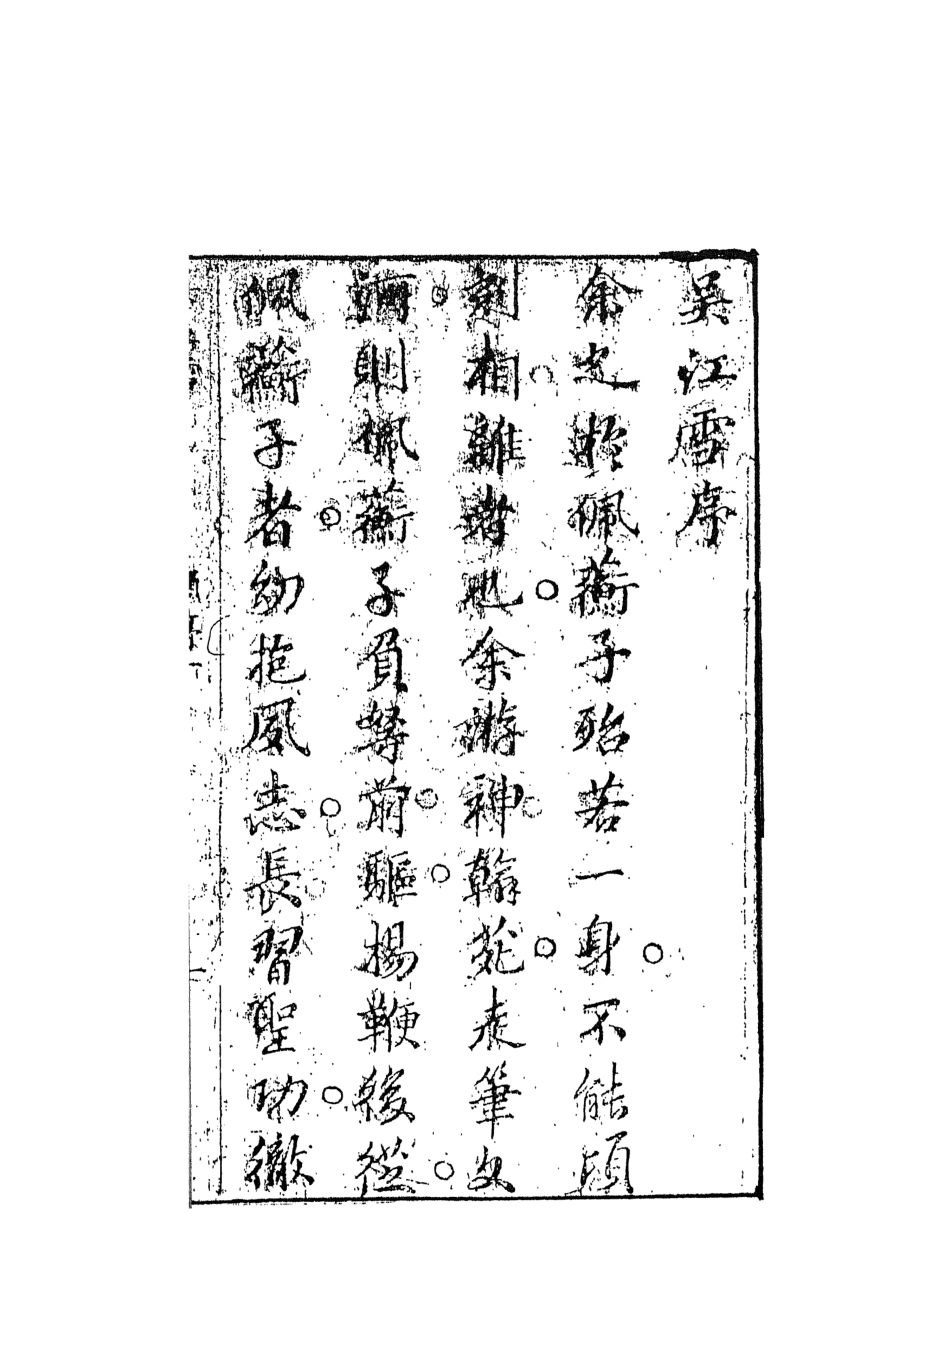 吳江雪序
余之於佩蘅子殆若一身不能頃
刻相離者也余游神翰苑表筆文
則佩蘅子負弩前驅揚鞭後從
佩蘅子者幼抱夙志長習聖功徹